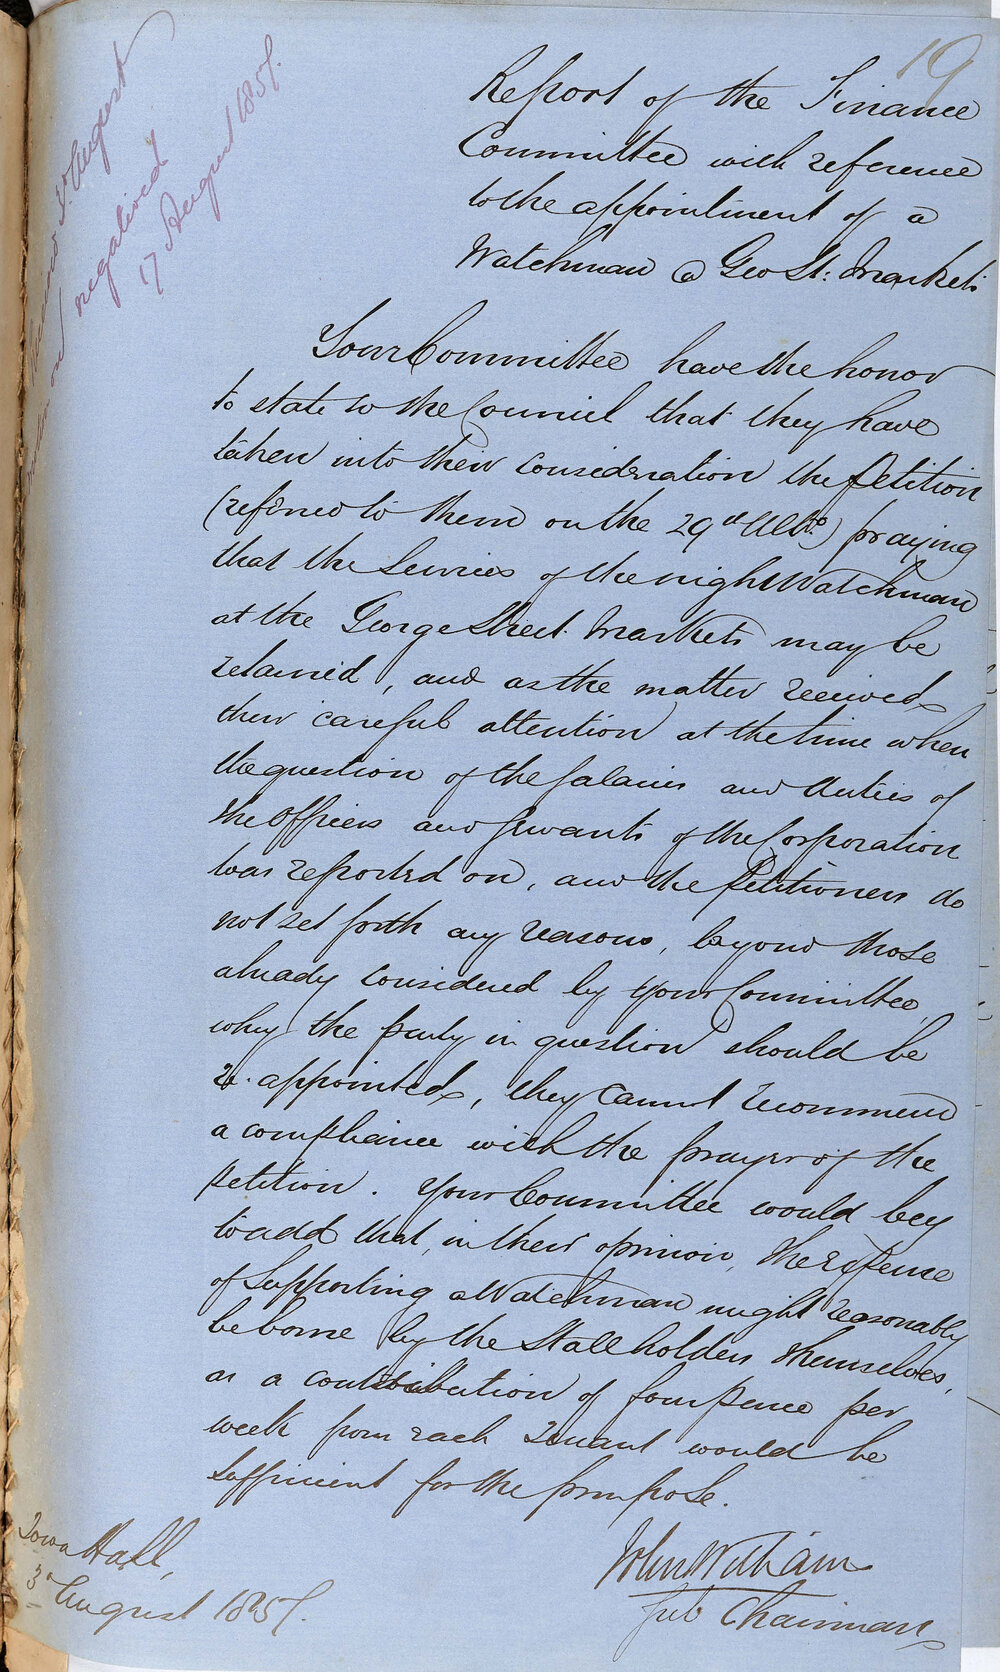 19
Report of the Finance
Committee with reference
to the appointment of a
Watchman @ Geo St: Markets
August
negatived
17 August 1857.
Your Committee have the honor
to state to the Council that they have
taken into their consideration the Petition
(referred to them on the 29th Ulto) praying
that the Services of the night Watchman
at the George Street Markets may be
retained, and as the matter received
their careful attention at the time when
the question of the Salaries and duties of
the Officers and Servants of the Corporation
was reported on, and the Petitioners do
not set forth any reasons, beyond those
already considered by your Committee,
why the party in question should be
re-appointed, they cannot recommend
a compliance with the prayer of the
petition. Your Committee would beg
to add that, in their opinion, the expense
of Supporting a Watchman might reasonably
be borne by the Stallholders themselves,
as a contribution of fourpence per
week from each Tenant would be
sufficient for the purpose.
Town Hall,
3d August 1857.
John Williams
Chairman